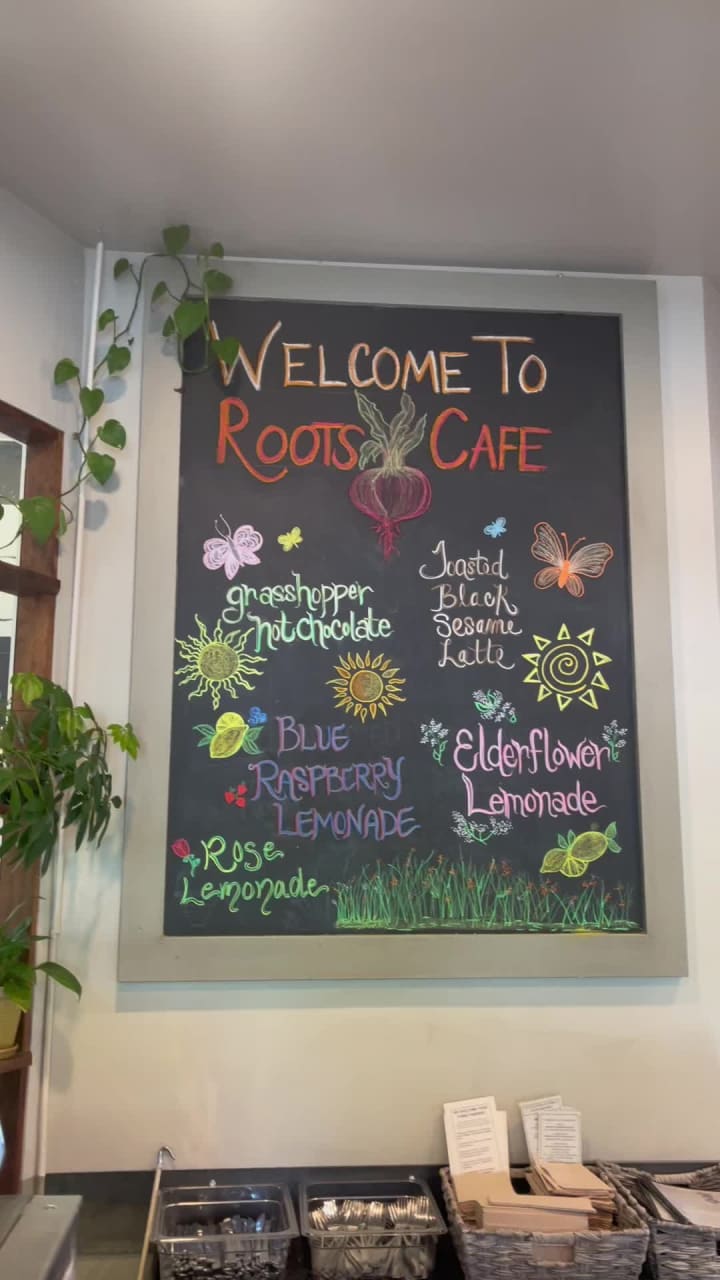 WELCOME TO
ROOTS CAFE
grasshopper
hotchocolate
Toasted
Black
Sesame
Latte
BLUE
RASPBERRY
LEMONADE
Elderflower
Lemonade
Rose
Lemonade